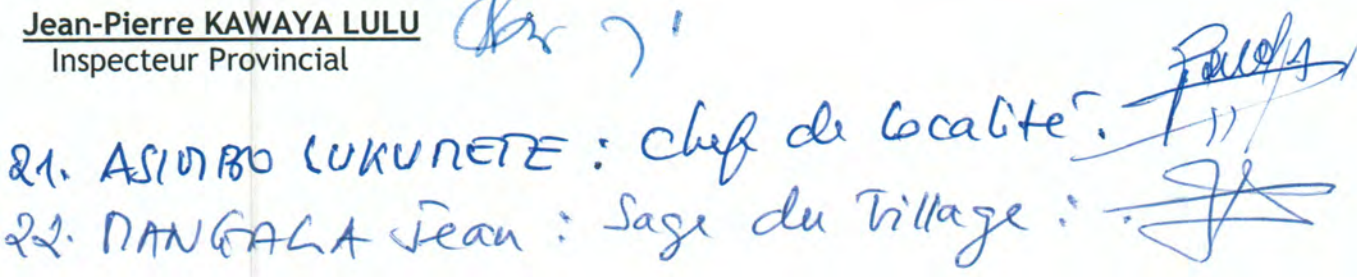 Jean-Pierre KAWAYA LULU
Inspecteur Provincial
21. ASIMBO LUKUMETE : Chef de localité.
22. MANGALA Jean : Sage du Village :